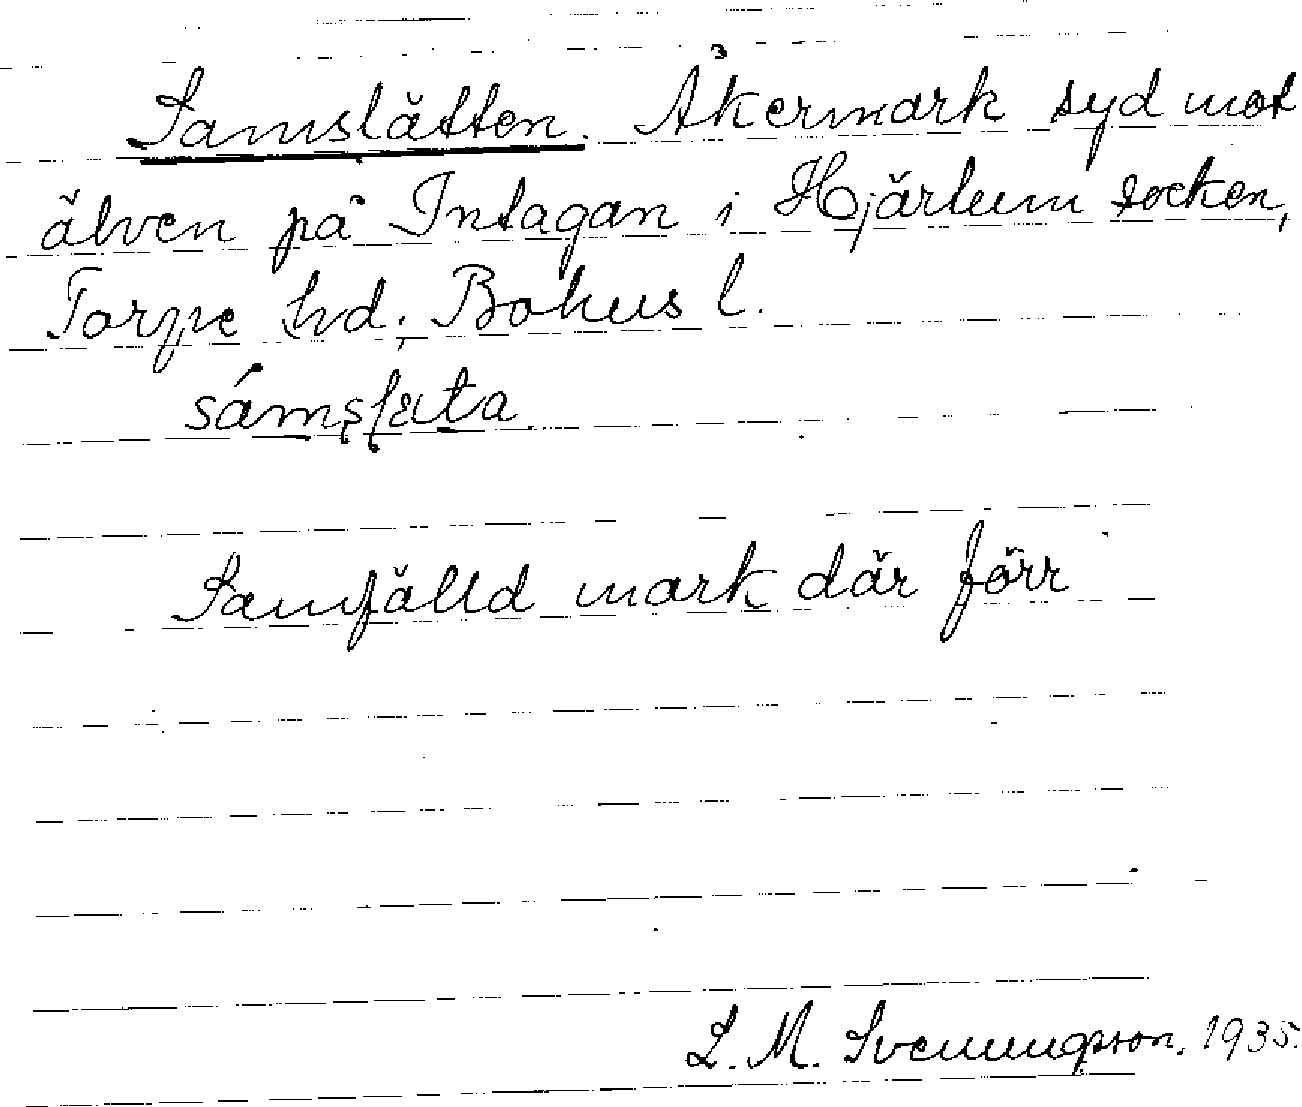 Samslätten. Åkermark syd mot
älven på Intagan i Hjärtum socken,
Torpe hd, Bohus l.
Samfälld mark där förr
L. M. Svenungsson. 1935.